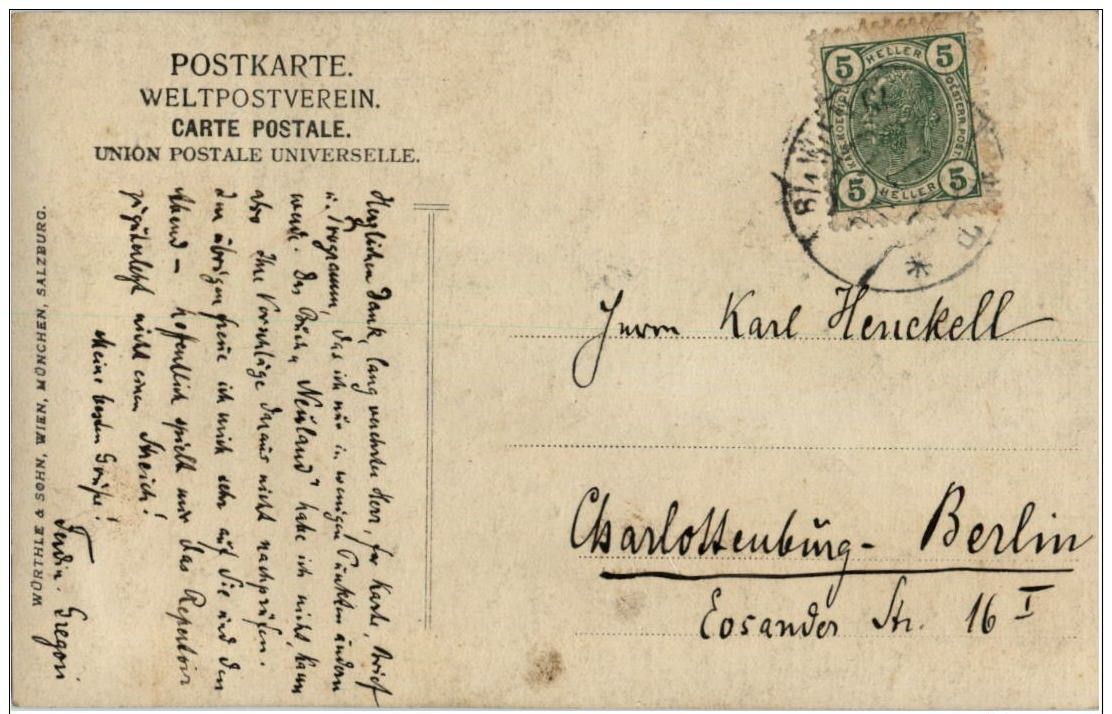 POSTKARTE.
WELTPOSTVEREIN.
CARTE POSTALE.
UNION POSTALE UNIVERSELLE.
5 HELLER 5
KAIS. KOENIGL. OESTERR. POST.
5 HELLER 5
WIEN
Herrn Karl Henckell
Charlottenburg-Berlin
Eosander Str. 16 I
Herzlichen Dank, lang verehrter Herr, für Karte, Brief
u. Programm, das ich nur in wenigen Punkten ändern
werde. Das Buch „Neuland" habe ich nicht, kann
also Ihre Vorschläge daraus nicht nachprüfen.
Im übrigen freue ich mich sehr auf Sie und den
Abend – hoffentlich spielt mir das Repertoir
zuguterletzt nicht einen Streich!
Meine besten Grüße!
Ferdin. Gregori
WÜRTHLE & SOHN, WIEN, MÜNCHEN, SALZBURG.